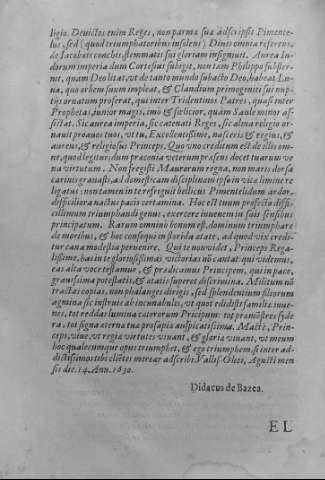 ligio. Deuictos enim Reges, non parma sua adscripsit Pimente-
lus, sed (quod triumphatoribus insolens) Diuis omnia referens,
de Iacobais conchis stemmatis sus gloriam insigniuit. Aurea In-
dorum imperia dum Cortesius subegit, non tam Philippo subster-
nit, quam Deo litat, vt de tanto mundo subacto Deo, habeat Lu-
na, quo orbem suum impleat, & Claudium primogenitis sui nup-
tijs ornatum proferat, qui inter Tridentinos Patres, quasi inter
Prophetas, iunior magis, imo & felicior, quam Saule minor of-
fictat. Sic aurea imperia, sic catenati Reges, sic alma religio or-
nauit proauos tuos, vt tu, Excellentissime, nasceris & regius, &
aureus, & religiosus Princeps. Quo vno creditum est de illis om-
ne, quod legitur: dum præconia veterum præsens docet tuarum ve-
na virtutum. Non fregisti Maurorum regna, non mare: dorsa
carinis granasti, ad domesticam disciplinam ipsa in vica limine re
ligatus: non tamen interefriguit bellicus Pimentelidum ardor,
difficiliora nactus pacis certamina. Hoc est tuum profecto diffi-
cillimum triumphandi genus, exercere iuuenem in suis sensibus
principatum. Rarum omninò bonum est, dominium triumphare
de moribus, & hoc consequi in florida ætate, ad quod vix credi-
tur cana modestia peruenire. Qui te non videt, Princeps Rega-
lissime, has in te gloriosissimas victorias nõ cantat: qui videmus,
eas alta voce testamur, & prædicamus Principem, qui in pace,
grauissima potestatis, & ætatis superet discrimina. Militum nõ
tractas copias, non phalanges dirigis, sed splendentium siliorum
agmina sic instruis ab incunabulis, vt quot edidisti familiæ iuue-
nes, tot reddas lumina cæterorum Pricipum: tot præmõstres syde
ra, tot signa æterna tua prosapia auspicatissima. Macte, Prin-
ceps, viue, vt regia virtutes viuant, & gloria viuant, vt meum
hoc qualecumque opus triumphet, & ego triumphem, si inter ad-
dictissimos tibi cliêtes merear adscribi. Vallis-Oleti, Agusti men
sis die. 14. Ann. 1630.
Didacus de Baeza.
EL